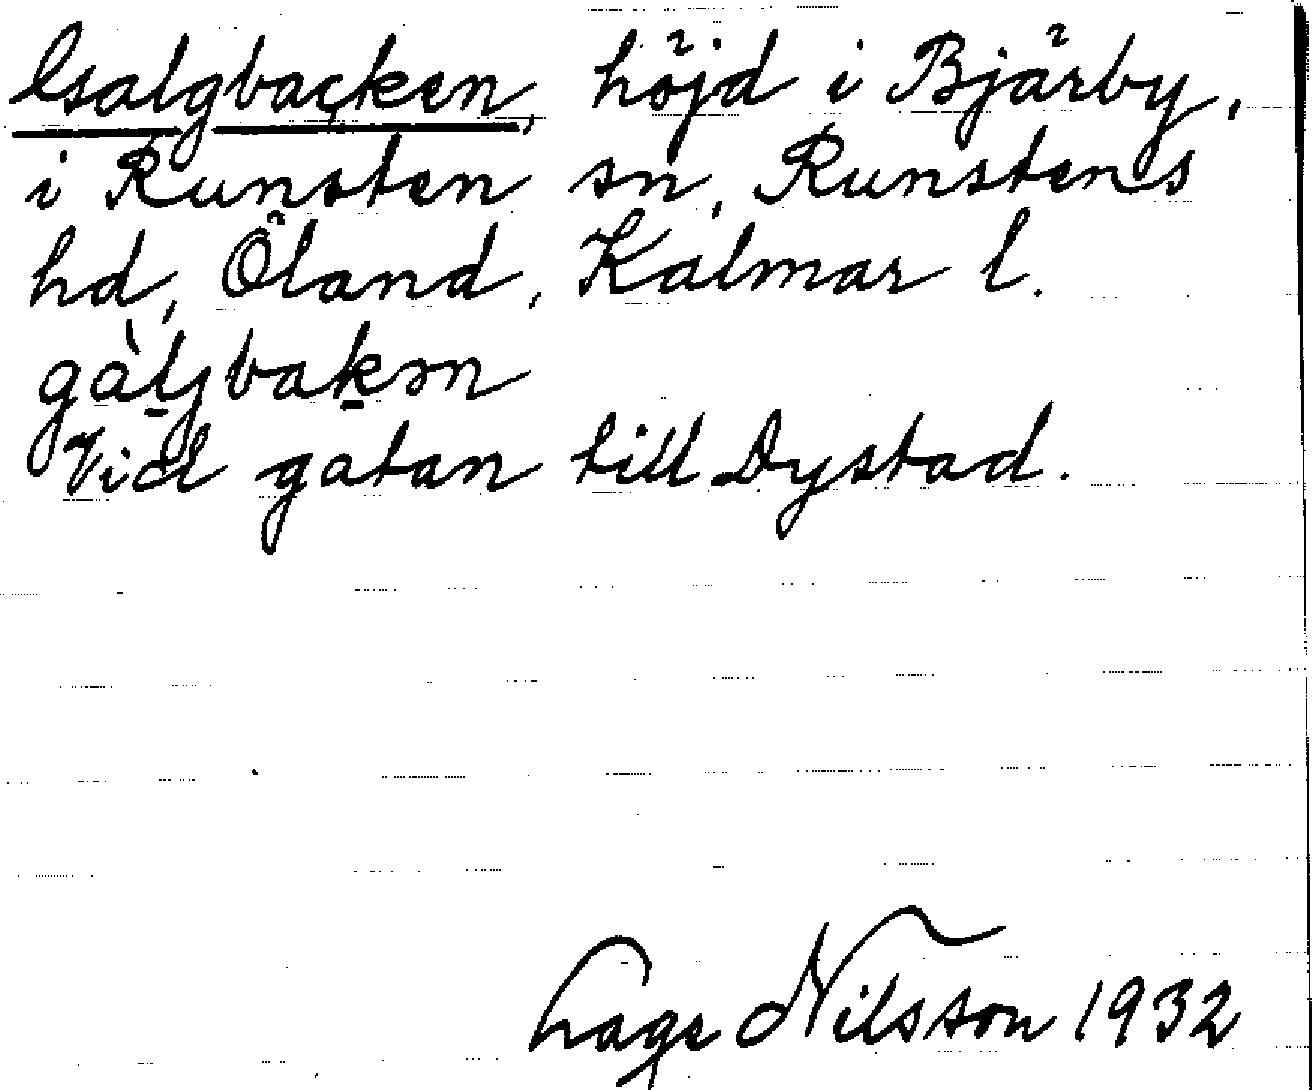 Galgbacken, höjd i Bjärby,
i Runsten sn, Runstens
hd, Öland, Kalmar l.
gàljbakən
Vid gatan till Dystad.
Lage Nilsson 1932